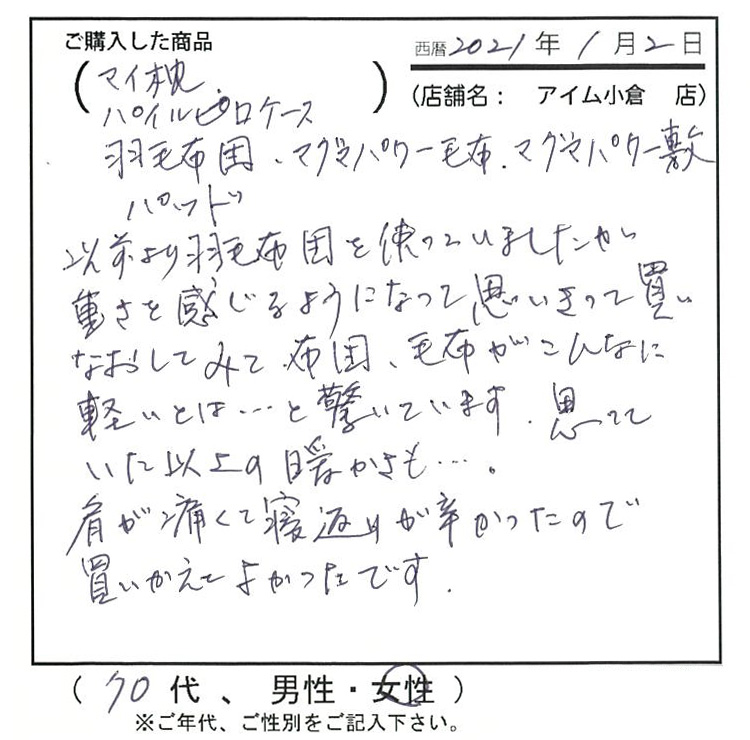 ご購入した商品
西暦2021年1月2日
(マイ枕.
パイルピロケース)
(店舗名： アイム小倉 店)
羽毛布団、マグマパワー毛布.マグマパワー敷
パッド
以前より羽毛布団を使っていましたが
重さを感じるようになって思いきって買い
なおしてみて.布団、毛布がこんなに
軽いとは…と驚いています.思って
いた以上の暖かさも…。
肩が痛くて寝返りが辛かったので
買いかえてよかったです.
(70代、男性・女性)
※ご年代、ご性別をご記入下さい。